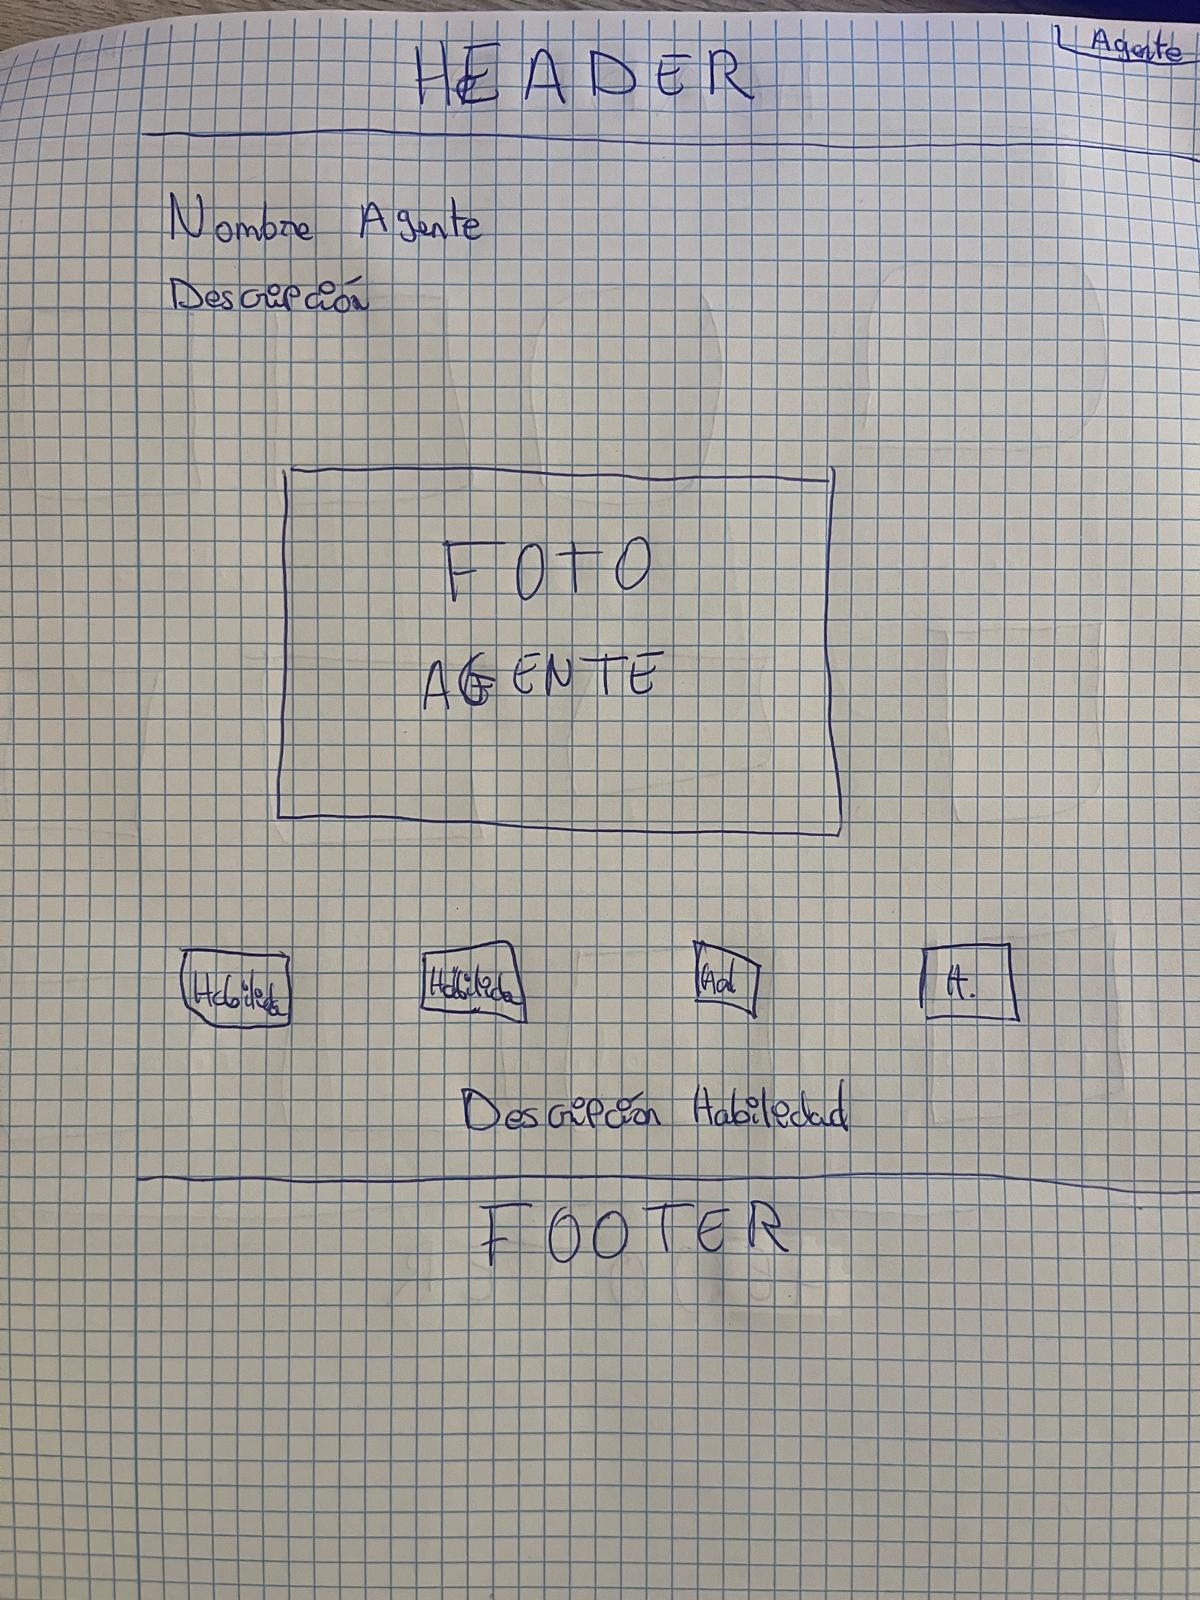 Agente
HEADER
Nombre Agente
Descripción
FOTO
AGENTE
Habilida Habilida Hab H.
Descripción Habilidad
FOOTER